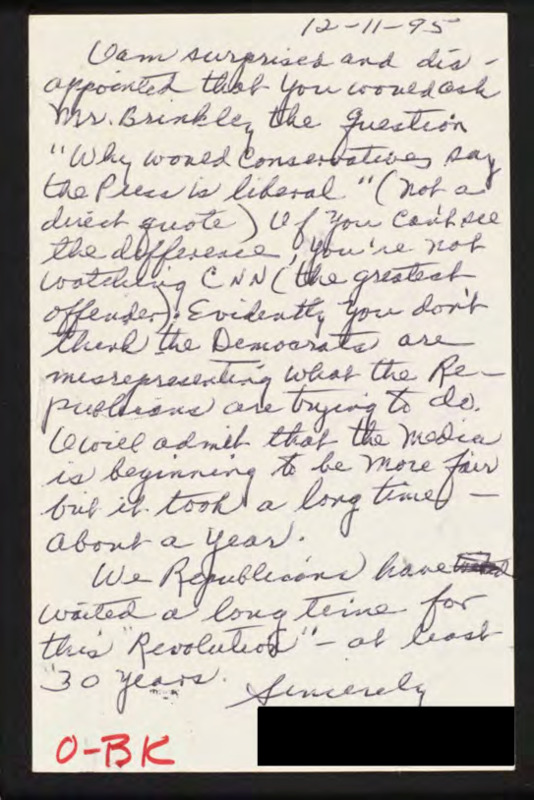 12-11-95
I am surprised and dis-
appointed that you would ask
Mr. Brinkley the question
"Why would Conservatives say
the Press is liberal" (not a
direct quote) If you can't see
the difference, you're not
watching CNN (the greatest
offender). Evidently you don't
think the Democrats are
misrepresenting what the Re-
publicans are trying to do.
I will admit that the media
is beginning to be more fair
but it took a long time -
about a year.
We Republicans have
waited a long time for
this "Revolution" - at least
30 years.
Sincerely
O-BK